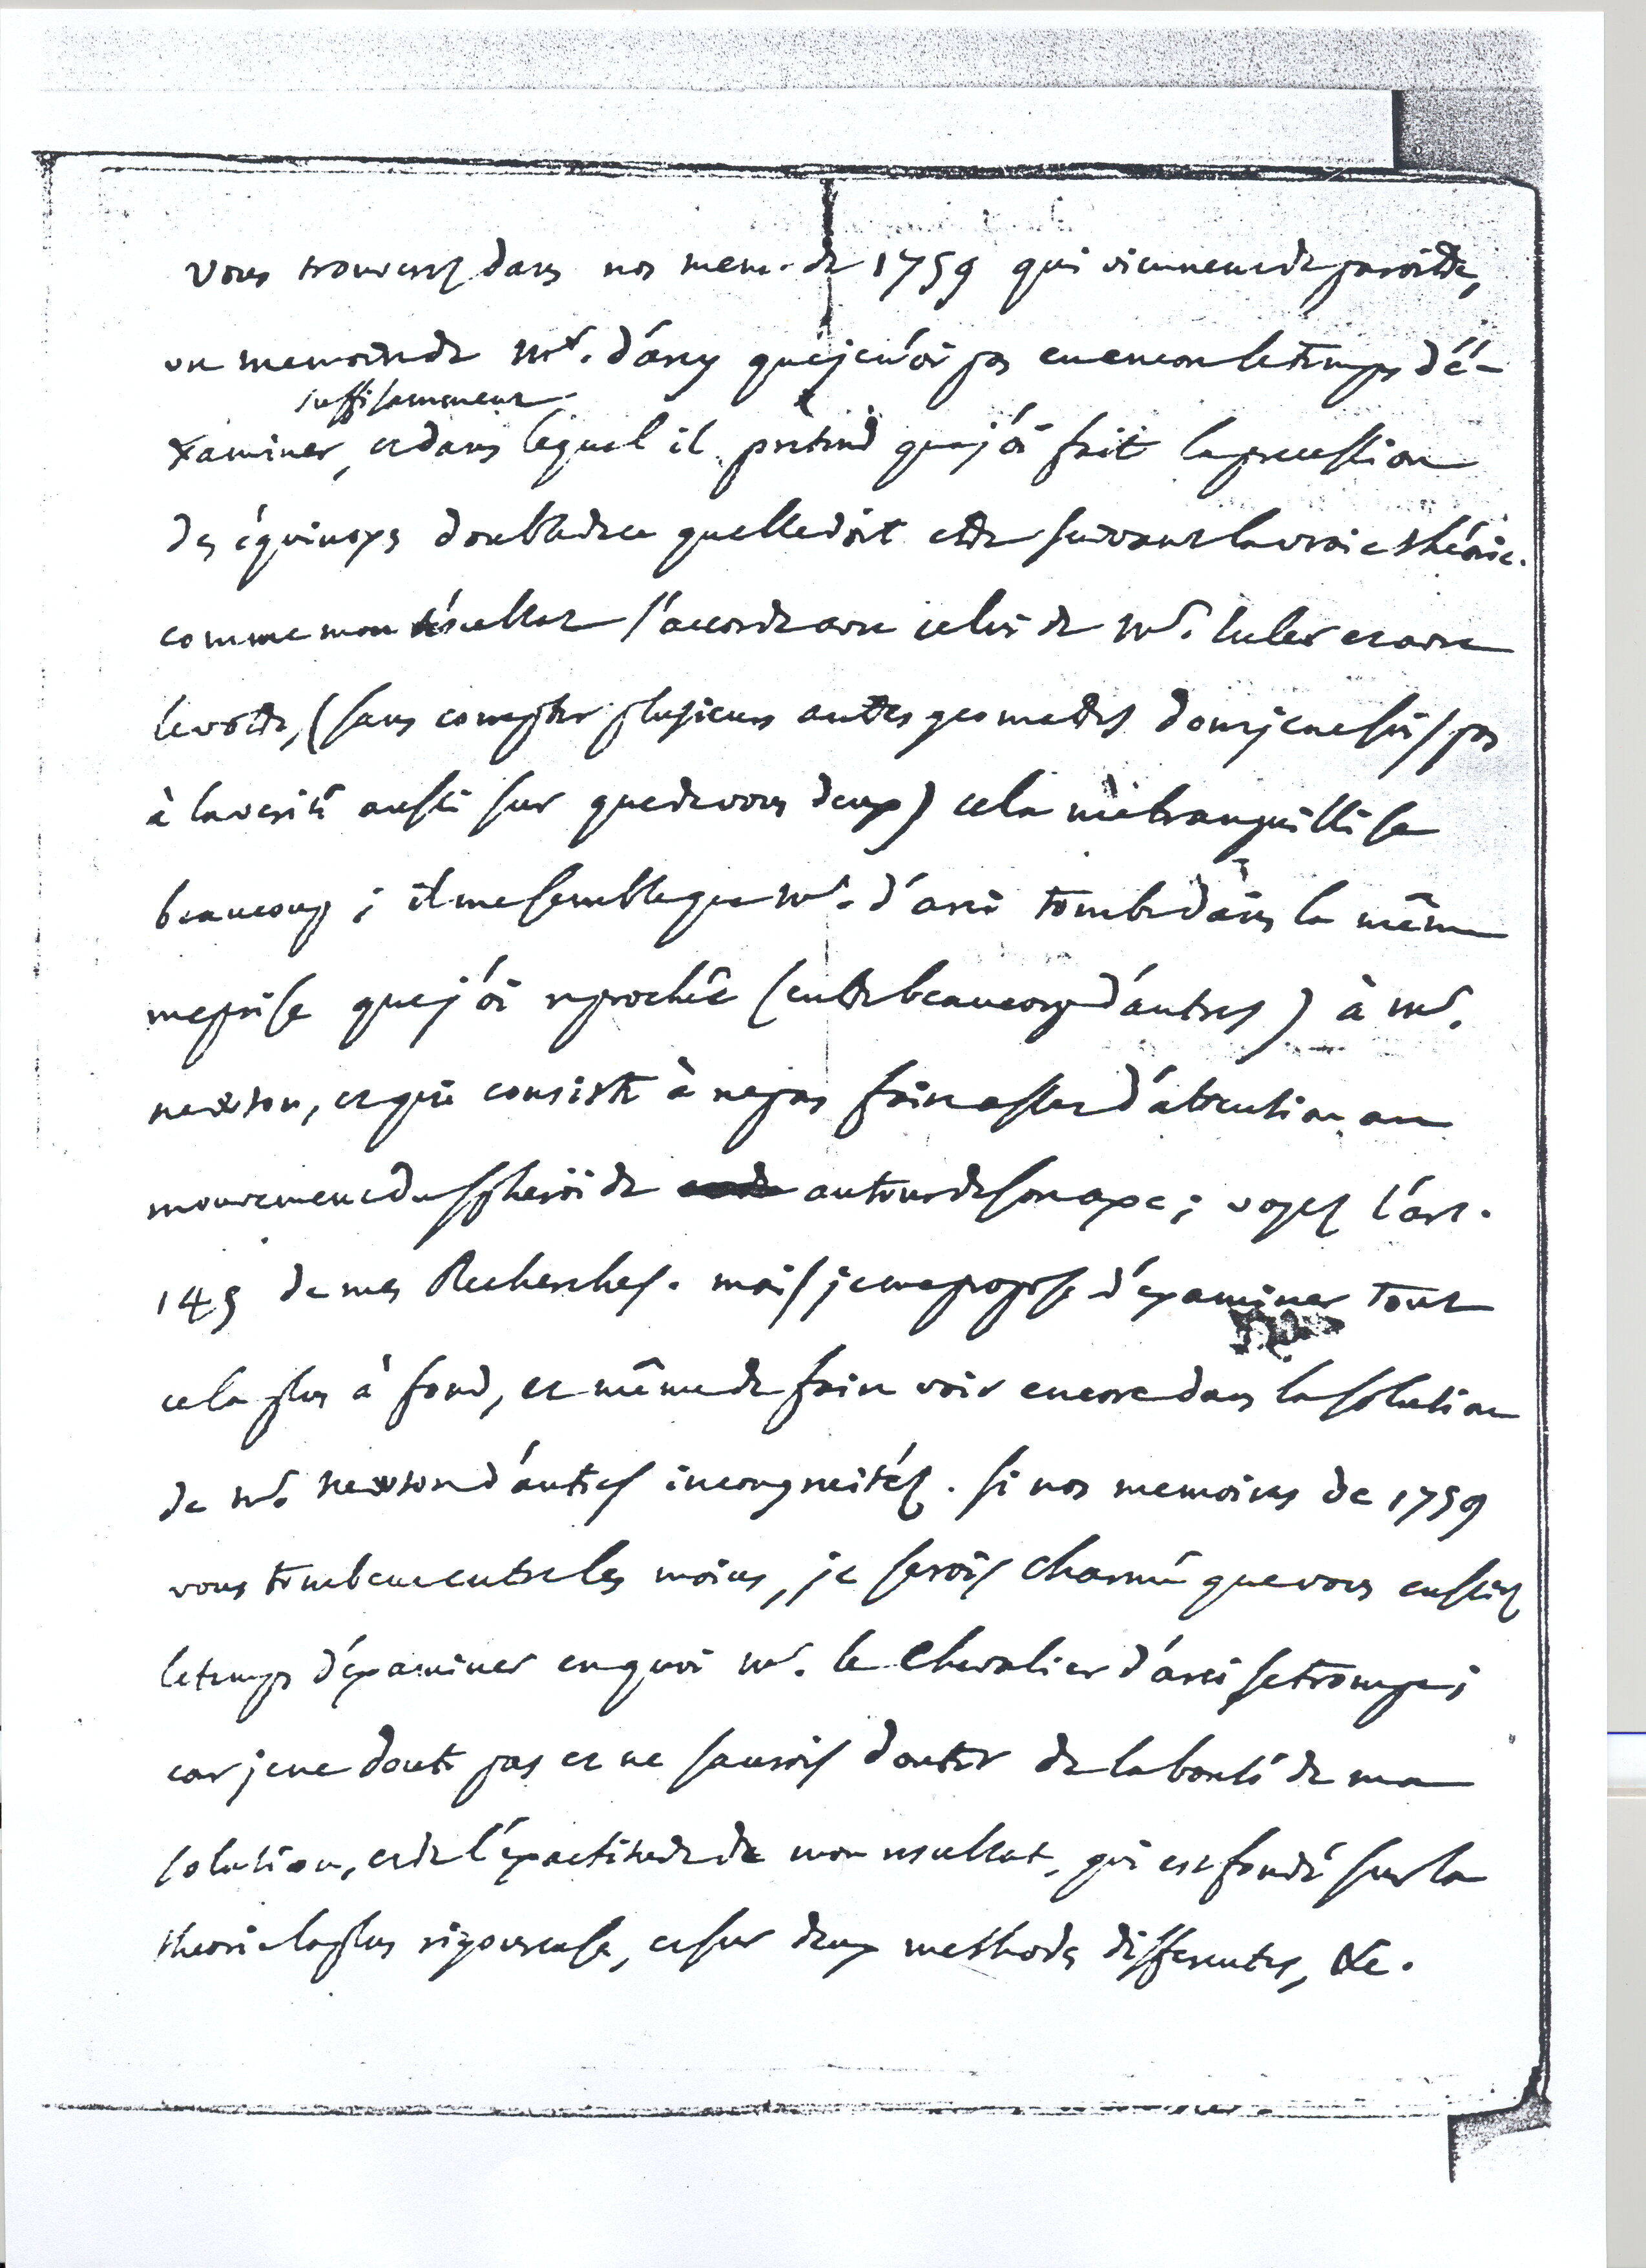 vous trouverez dans nos mem. de 1759 qui viennent de paroitre,
un memoire de Mr. d'arcy que je n'ai pas eu encore le temps d'é-
suffisamment
xaminer, et dans lequel il pretend que j'ai fait la precession
des équinoxes double de ce quelle doit etre suivant la vraie théorie.
comme mon résultat s'accorde avec celui de Mr. Euler et avec
le votre, (sans compter plusieurs autres geometres dont je ne suis pas
à la verité aussi sur que de vous deux) cela me tranquillise
beaucoup ; il me semble que Mr. d'arci tombe dans la même
meprise que j'ai reprochée (entre beaucoup d'autres) à Mr.
newton, et qui consiste à ne pas faire assez d'attention au
mouvement du spheroïde autour de son axe ; voyez l'art.
145 de mes Recherches. mais je me propose d'examiner tout
cela plus à fond, et même de faire voir encore dans la solution
de Mr. newton d'autres incongruitéz. si nos memoires de 1759
vous tombent entre les mains, je serois charmé que vous eussiez
le temps d'examiner en quoi Mr. le Chevalier d'arci se trompe ;
car je ne doute pas et ne saurois douter de la bonté de ma
solution, et de l'exactitude de mon resultat, qui est fondé sur la
theorie la plus rigoureuse, et sur deux methodes differentes, &c.